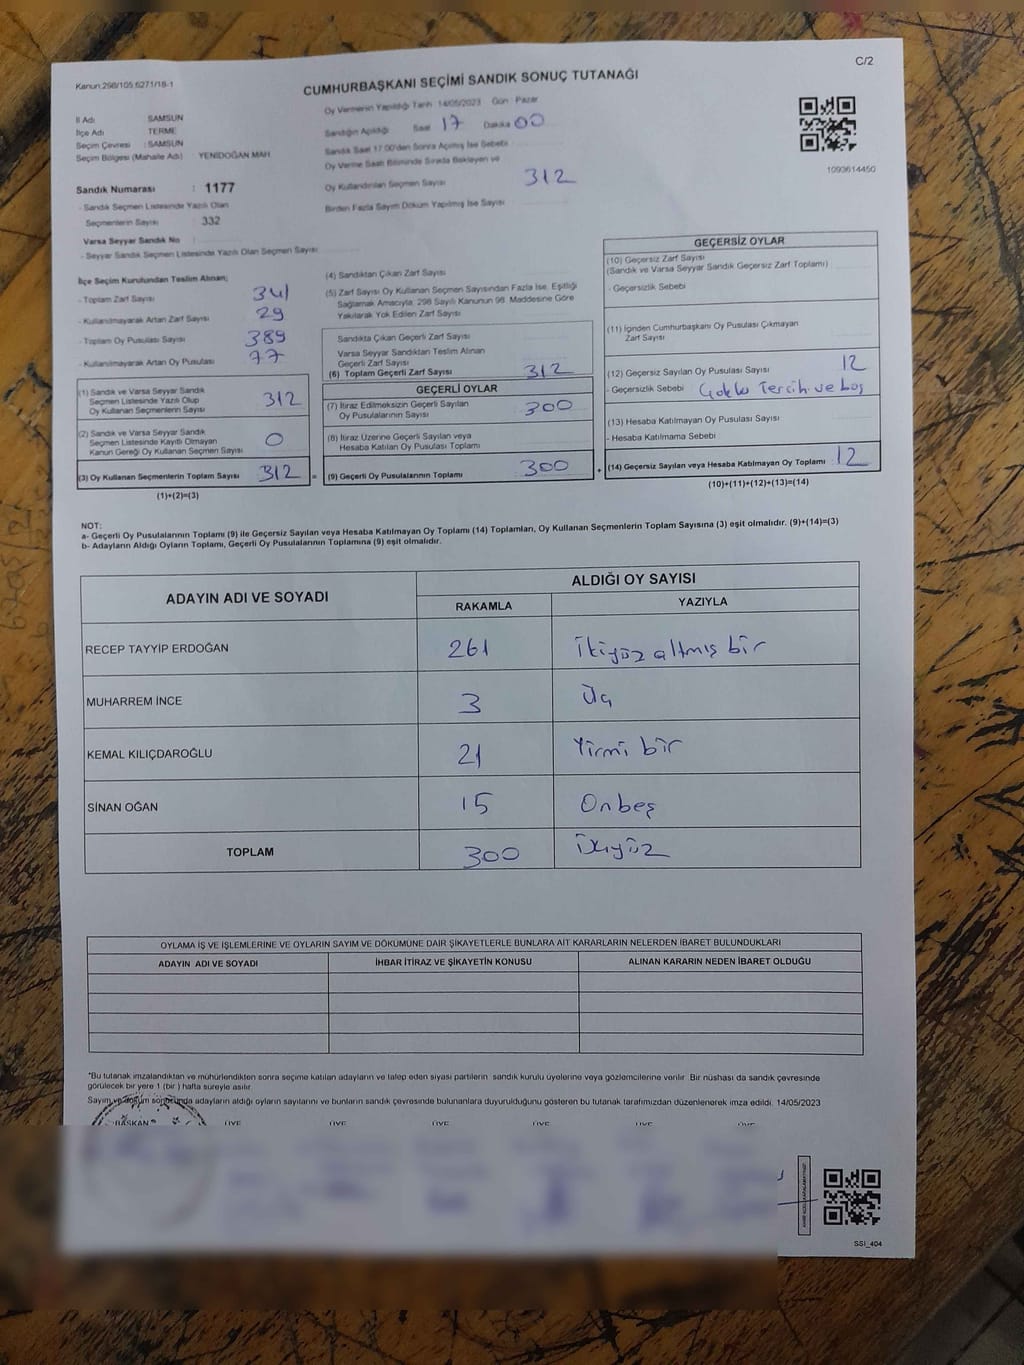 C/2
Kanun:298/105 6271/18-1
CUMHURBAŞKANI SEÇİMİ SANDIK SONUÇ TUTANAĞI
Oy Vermenin Yapıldığı Tarih 14/05/2023 Gün : Pazar
İl Adı SAMSUN
İlçe Adı TERME
Seçim Çevresi : SAMSUN
Seçim Bölgesi (Mahalle Adı) YENİDOĞAN MAH
Sandığın Açıldığı Saat 17 Dakika 00
Sandık Saat 17:00'den Sonra Açılmış İse Sebebi
Oy Verme Saati Bitiminde Sırada Bekleyen ve
Oy Kullandırılan Seçmen Sayısı 312
Birden Fazla Sayım Döküm Yapılmış İse Sayısı
1093614450
Sandık Numarası : 1177
- Sandık Seçmen Listesinde Yazılı Olan
Seçmenlerin Sayısı 332
Varsa Seyyar Sandık No
- Seyyar Sandık Seçmen Listesinde Yazılı Olan Seçmen Sayısı
İlçe Seçim Kurulundan Teslim Alınan;
- Toplam Zarf Sayısı 341
- Kullanılmayarak Artan Zarf Sayısı 29
- Toplam Oy Pusulası Sayısı 389
- Kullanılmayarak Artan Oy Pusulası 77
(1) Sandık ve Varsa Seyyar Sandık
Seçmen Listesinde Yazılı Olup
Oy Kullanan Seçmenlerin Sayısı 312
(2) Sandık ve Varsa Seyyar Sandık
Seçmen Listesinde Kayıtlı Olmayan
Kanun Gereği Oy Kullanan Seçmen Sayısı 0
(3) Oy Kullanan Seçmenlerin Toplam Sayısı 312 =
(1)+(2)=(3)
(4) Sandıktan Çıkan Zarf Sayısı
(5) Zarf Sayısı Oy Kullanan Seçmen Sayısından Fazla İse, Eşitliği
Sağlamak Amacıyla, 298 Sayılı Kanunun 98. Maddesine Göre
Yakılarak Yok Edilen Zarf Sayısı
Sandıkta Çıkan Geçerli Zarf Sayısı
Varsa Seyyar Sandıktan Teslim Alınan
Geçerli Zarf Sayısı
(6) Toplam Geçerli Zarf Sayısı 312
GEÇERLİ OYLAR
(7) İtiraz Edilmeksizin Geçerli Sayılan
Oy Pusulalarının Sayısı 300
(8) İtiraz Üzerine Geçerli Sayılan veya
Hesaba Katılan Oy Pusulası Toplamı
(9) Geçerli Oy Pusulalarının Toplamı 300 +
GEÇERSİZ OYLAR
(10) Geçersiz Zarf Sayısı
(Sandık ve Varsa Seyyar Sandık Geçersiz Zarf Toplamı)
- Geçersizlik Sebebi
(11) İçinden Cumhurbaşkanı Oy Pusulası Çıkmayan
Zarf Sayısı
(12) Geçersiz Sayılan Oy Pusulası Sayısı 12
- Geçersizlik Sebebi Tercih ve boş
(13) Hesaba Katılmayan Oy Pusulası Sayısı
- Hesaba Katılmama Sebebi
(14) Geçersiz Sayılan veya Hesaba Katılmayan Oy Toplamı 12
(10)+(11)+(12)+(13)=(14)
NOT:
a- Geçerli Oy Pusulalarının Toplamı (9) ile Geçersiz Sayılan veya Hesaba Katılmayan Oy Toplamı (14) Toplamları, Oy Kullanan Seçmenlerin Toplam Sayısına (3) eşit olmalıdır. (9)+(14)=(3)
b- Adayların Aldığı Oyların Toplamı, Geçerli Oy Pusulalarının Toplamına (9) eşit olmalıdır.
ADAYIN ADI VE SOYADI
ALDIĞI OY SAYISI
RAKAMLA YAZIYLA
RECEP TAYYİP ERDOĞAN 261 İkiyüz altmış bir
MUHARREM İNCE 3 Üç
KEMAL KILIÇDAROĞLU 21 Yirmi bir
SİNAN OĞAN 15 Onbeş
TOPLAM 300
OYLAMA İŞ VE İŞLEMLERİNE VE OYLARIN SAYIM VE DÖKÜMÜNE DAİR ŞİKAYETLERLE BUNLARA AİT KARARLARIN NELERDEN İBARET BULUNDUKLARI
ADAYIN ADI VE SOYADI İHBAR İTİRAZ VE ŞİKAYETİN KONUSU ALINAN KARARIN NEDEN İBARET OLDUĞU
*Bu tutanak imzalandıktan ve mühürlendikten sonra seçime katılan adayların ve talep eden siyasi partilerin sandık kurulu üyelerine veya gözlemcilerine verilir. Bir nüshası da sandık çevresinde
görülecek bir yere 1 (bir ) hafta süreyle asılır.
Sayım ve döküm sonucunda adayların aldığı oyların sayılarını ve bunların sandık çevresinde bulunanlara duyurulduğunu gösteren bu tutanak tarafımızdan düzenlenerek imza edildi. 14/05/2023
BAŞKAN ÜYE ÜYE ÜYE ÜYE ÜYE ÜYE
SSİ_404